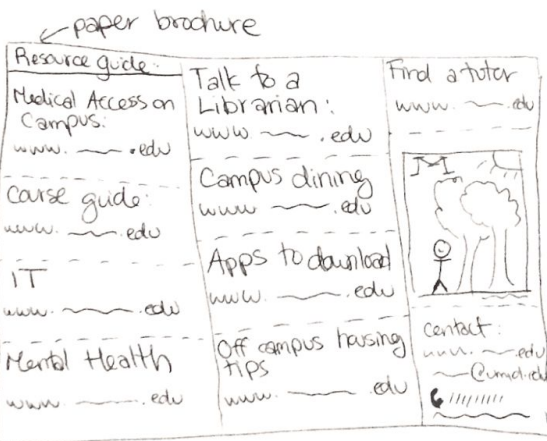 paper brochure
Resource guide:
Medical Access on
Campus:
www. .edu
Course guide:
www. .edu
IT
www. .edu
Mental Health
www. .edu
Talk to a
Librarian:
www .edu
Campus dining
www .edu
Apps to download
www. .edu
Off campus housing
tips
www. .edu
Find a tutor
www. .edu
M
Contact:
www. .edu